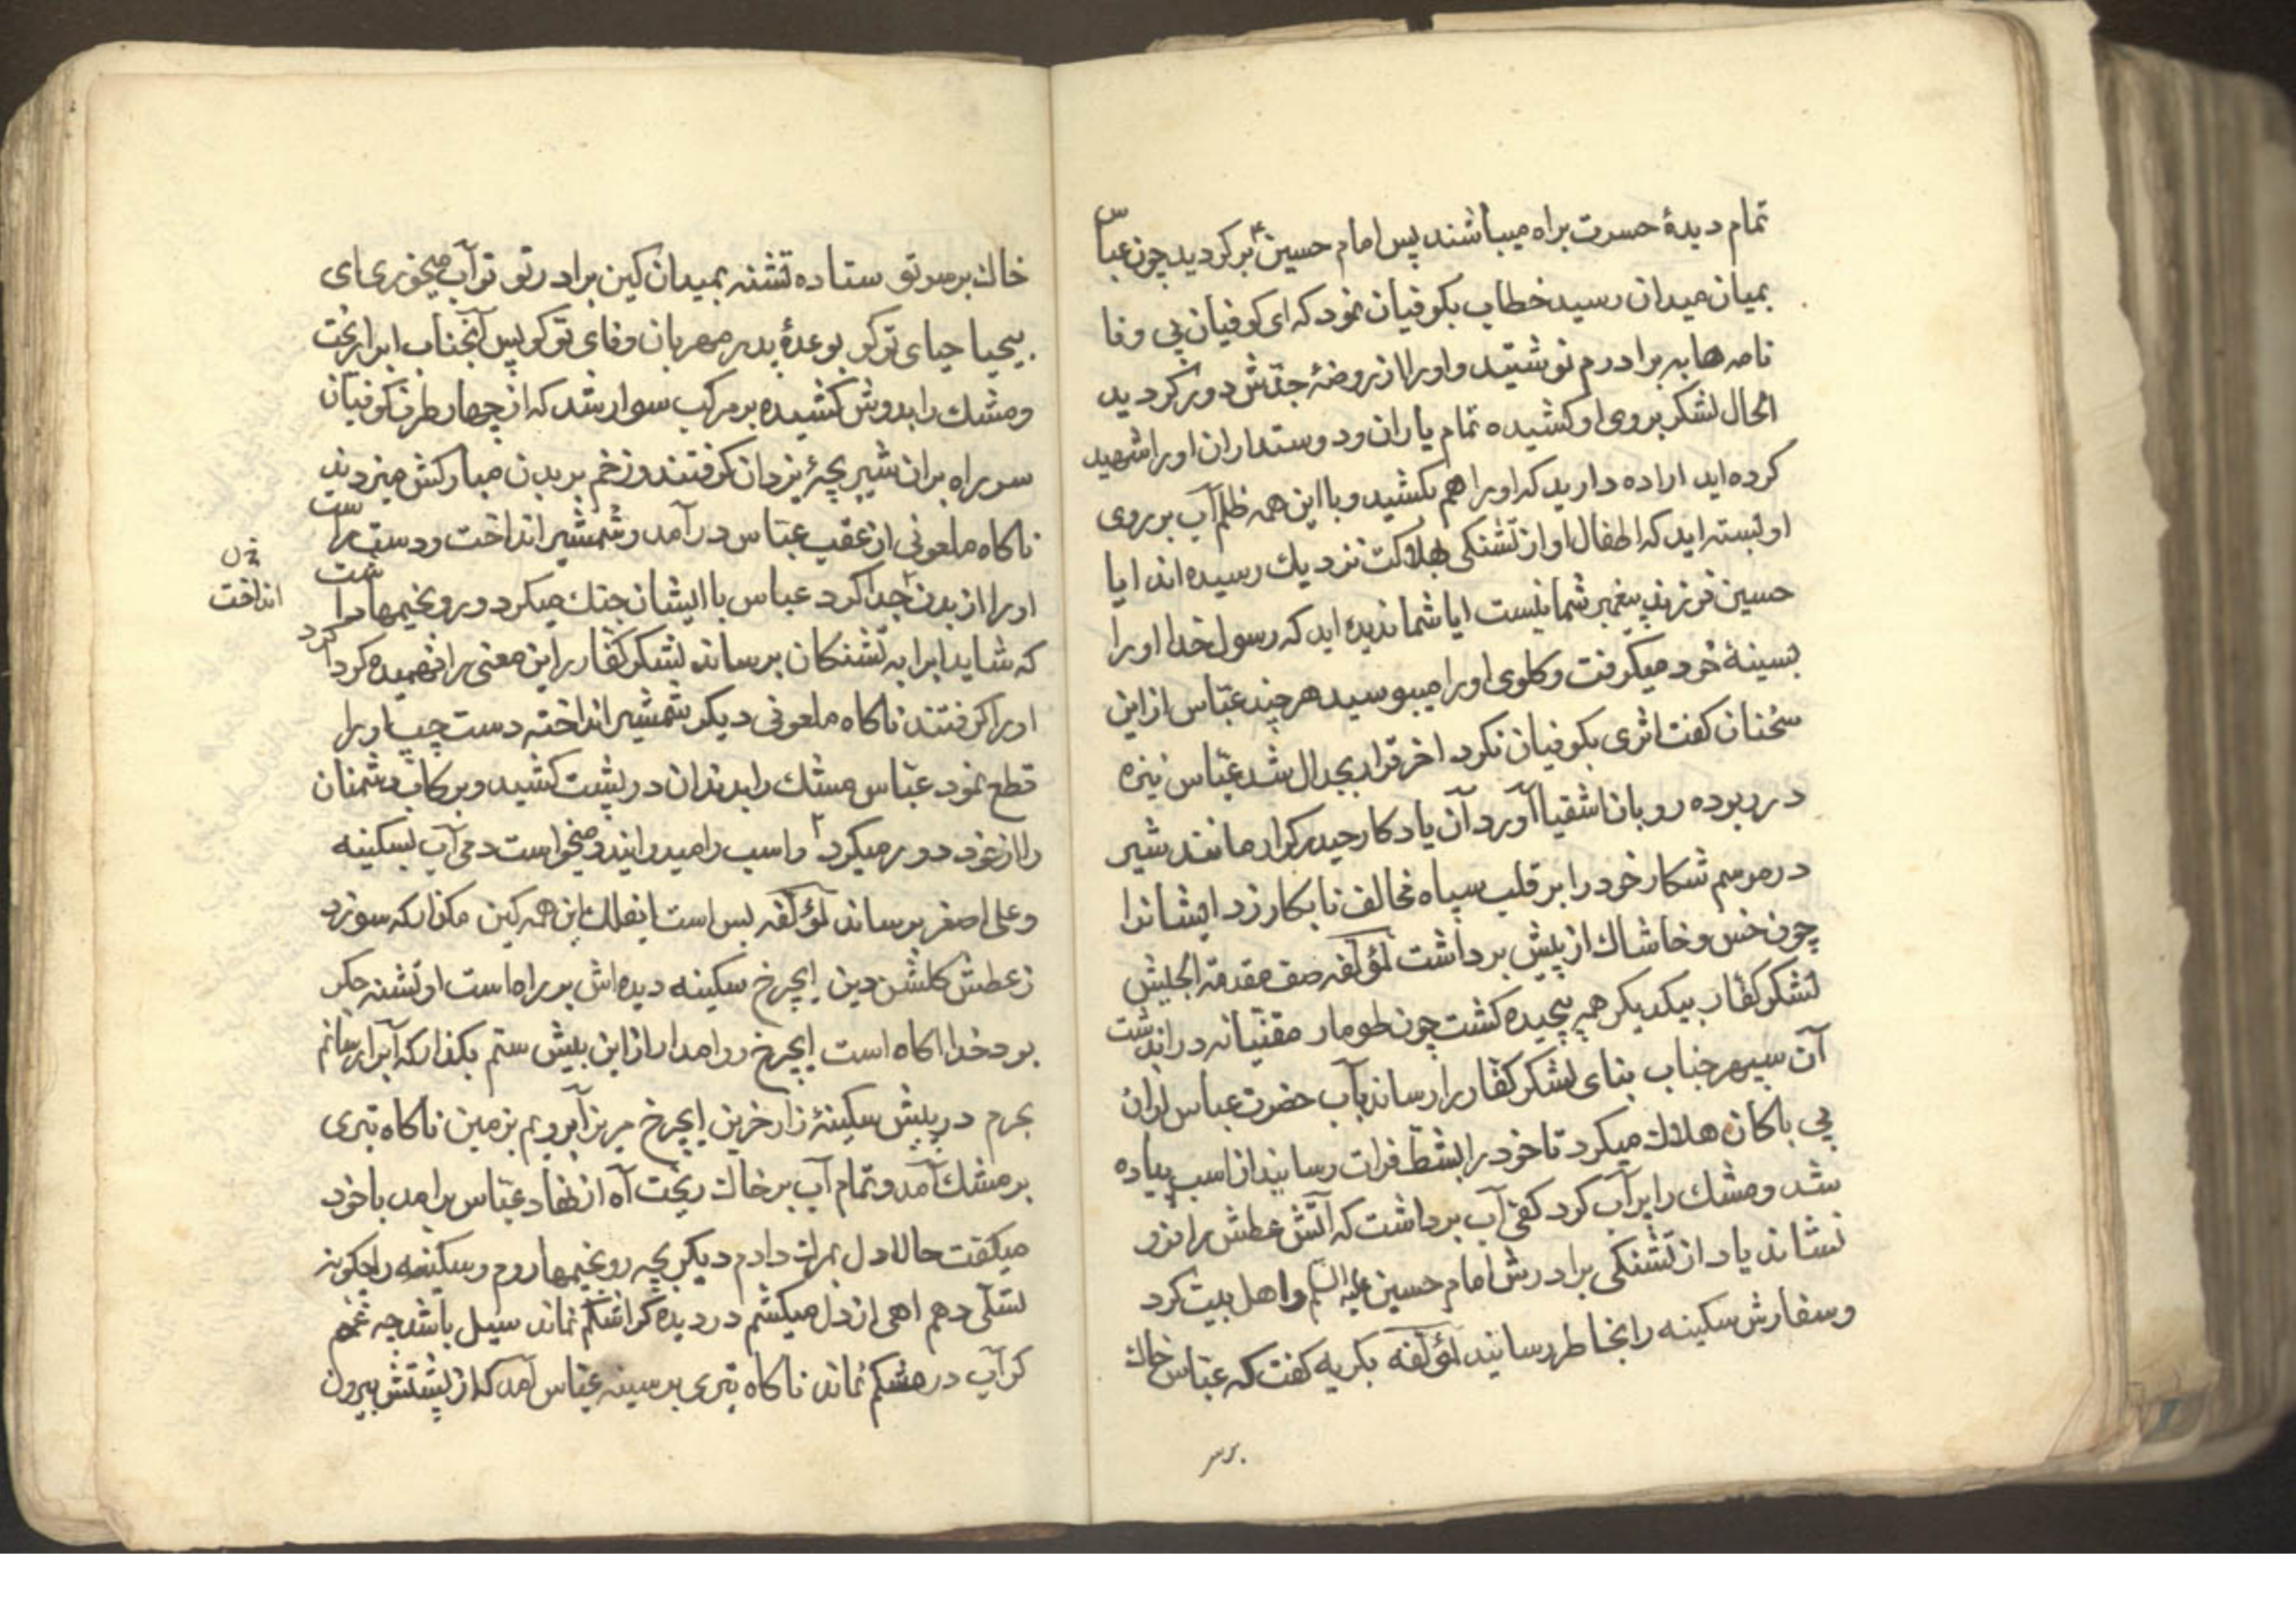 تمام دیدهٔ حسرت براه میباشند پس امام حسین ع برکردید چون عباس
بمیان میدان رسید خطاب بکوفیان نمود که ای کوفیان بی وفا
نامه ها به برادرم نوشتید و او را از روضهٔ جدّش دور کردید
الحال لشکر بروی او کشیده تمام یاران و دوستداران او را شهید
کرده اید اراده دارید که او را هم بکشید و با این همه ظلم آب بر روی
او بسته اید که اطفال او از تشنکی بهلاکت نزدیك رسیده اند ایا
حسین فرزند پیغمبر شما نیست ایا شما ندیده اید که رسول خدا او را
بسینهٔ خود میکرفت و کلوی او را میبوسید هر چند عبّاس از این
سخنان کفت اثری بکوفیان نکرد اخر قرار بجدال شد عبّاس نیزه
در ربوده رو بان اشقیا آورد آن یادکار حیدر کرار مانند شیر
در موسم شکار خود را بر قلب سپاه مخالف نابکار زد ایشانرا
چون خس و خاشاك از پیش برداشت لمؤلفه صف مقدمة الجیش
لشکر کفّار بیکدیکر همه پیچیده کشت چون طومار مقنیانه در اندشت
آن سپهر جناب بنای لشکر کفّار را رساند بآب حضرت عباس ازان
بی باکان هلاك میکرد تا خود را بشطّ فرات رسانید از اسب پیاده
شد و مشك را پر آب کرد کفی آب برداشت که آتش عطش را فرو
نشاند یاد از تشنکی برادرش امام حسین علیه السلم و اهل بیت کرد
و سفارش سکینه را بخاطر رسانید لمؤلفه بکریه کفت که عبّاس خاك
خاك بر سر تو ستاده تشنه بمیدان کین برادر تو تو آب میخوری ای
بیحیا حیای تو کو بوعدهٔ پدر مهربان وفای تو کو پس آنجناب ابرا ریخت
و مشك را بدوش کشیده بر مرکب سوار شد که از چهار طرف کوفیان
سر راه بران شیر بچهٔ یزدان کرفتند و زخم بر بدن مبارکش میزدند
ناکاه ملعونی از عقب عبّاس در آمد و شمشیر انداخت و دست راست
او را از بدن جدا کرد عباس با ایشان جنك میکرد و رو بخیمها داشت
انداخت
که شاید ابرا به تشنکان برساند لشکر کفّار این معنی را فهمیده کرداکرد
او را کرفتند ناکاه ملعونی دیکر شمشیر انداخته دست چپ او را
قطع نمود عبّاس مشك را بدندان در پشت کشید و برکاب دشمنان
را از خود دور میکرد و اسب را میدوانید و میخواست دمی آب بسکینه
و علی اصغر برساند لمؤلفه بس است ایفلك این همه کین مکذار که سوزد
ز عطش کلشن دین ایچرخ سکینه دیده اش بر راه است او تشنه جکر
بود خدا اکاه است ایچرخ روا مدار از این بیش ستم بکذار که آبرا رسانم
بحرم در پیش سکینهٔ زار حزین ایچرخ مریز آبرویم بزمین ناکاه تیری
بر مشك آمد و تمام آب بر خاك ریخت آه از نهاد عبّاس برامد با خود
میکفت حالا دل بمرك دادم دیکر بچه رو بخیمها روم و سکینه را چکونه
تسلّی دهم اهی از دل میکشم در دیده کر اشکم نماند سیل باشد چه غمم
کر آب در مشکم نماند ناکاه تیری بر سینه عبّاس آمد که از پشتش بیرون